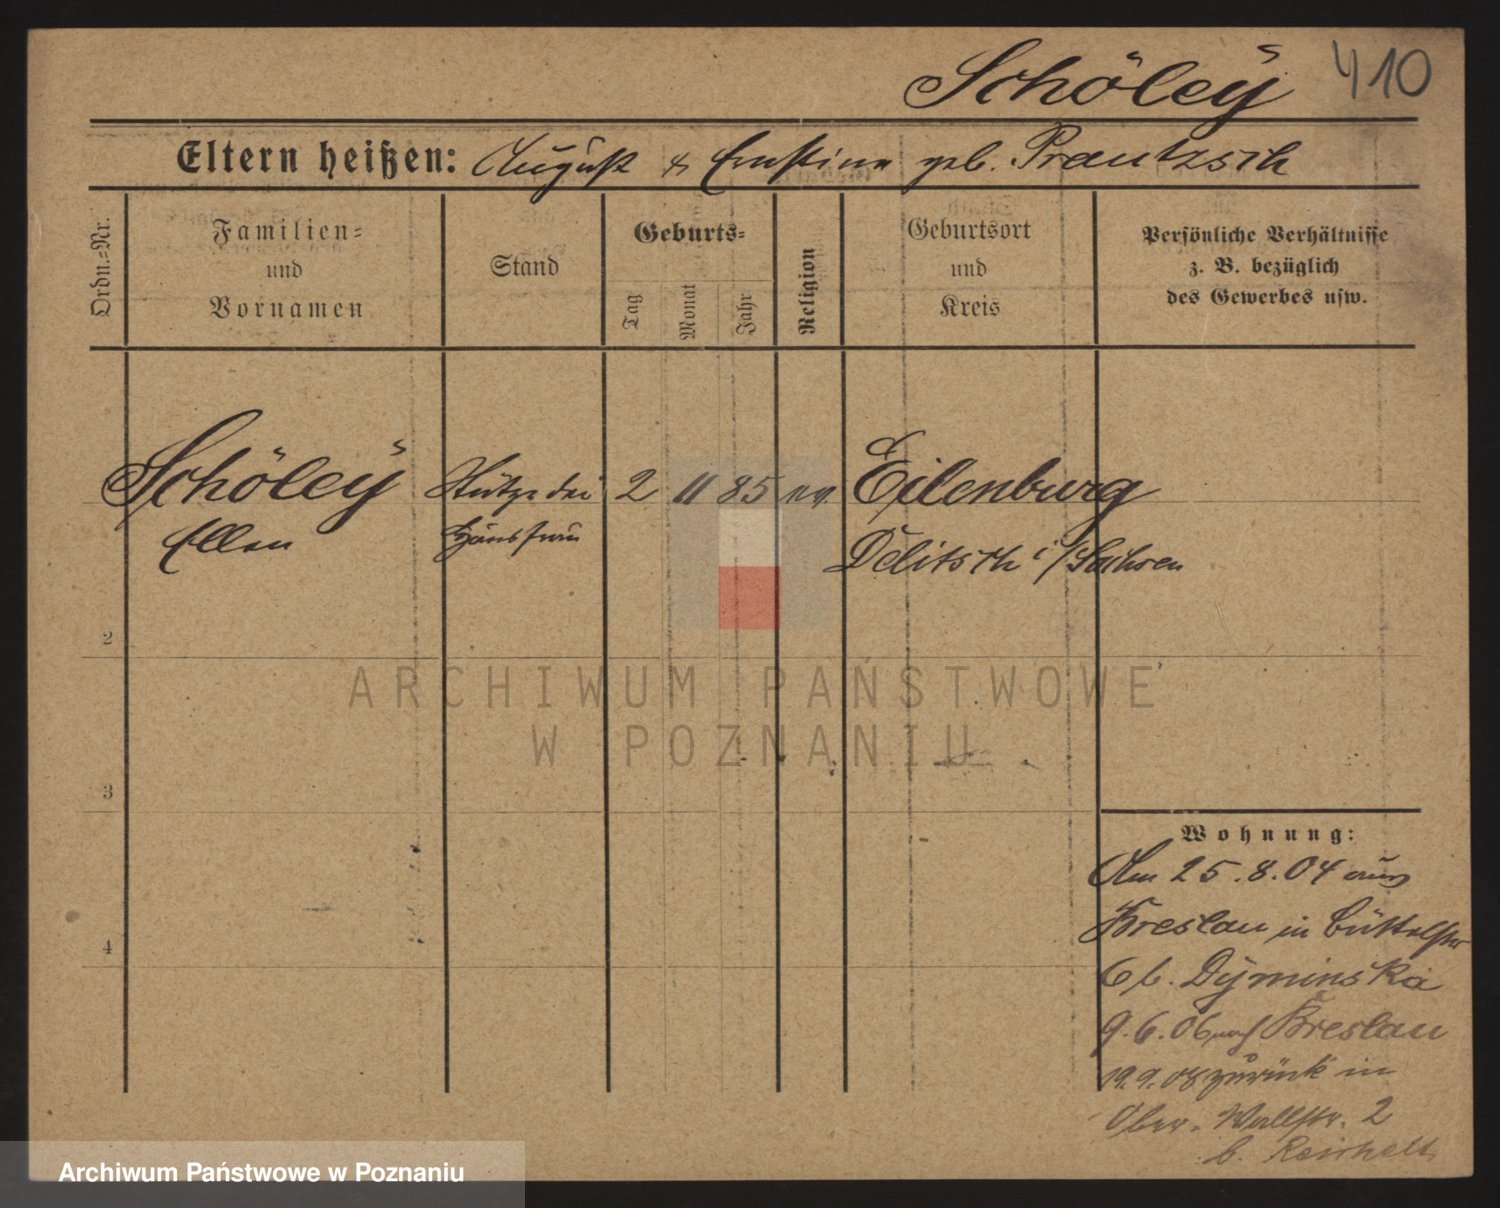 Schöley 410
Eltern heißen: August & Ernstine geb. Prautzsch
Ordn.=Nr.
Familien=
und
Vornamen
Stand
Geburts=
Tag
Monat
Jahr
Religion
Geburtsort
und
Kreis
Persönliche Verhältnisse
z. B. bezüglich
des Gewerbes usw.
Schöley Stütze der 2 11 85 ev. Eilenburg
Ellen Hausfrau Delitsch i/Sachsen
2
3
4
ARCHIWUM PAŃSTWOWE
W POZNANIU
Wohnung:
Am 25.8.04 aus
Breslau in Büttelstr
6 b. Dyminska
9.6.06 nach Breslau
19.9.08 zurück in
Ober-Wallstr. 2
b. Reichelt
Archiwum Państwowe w Poznaniu